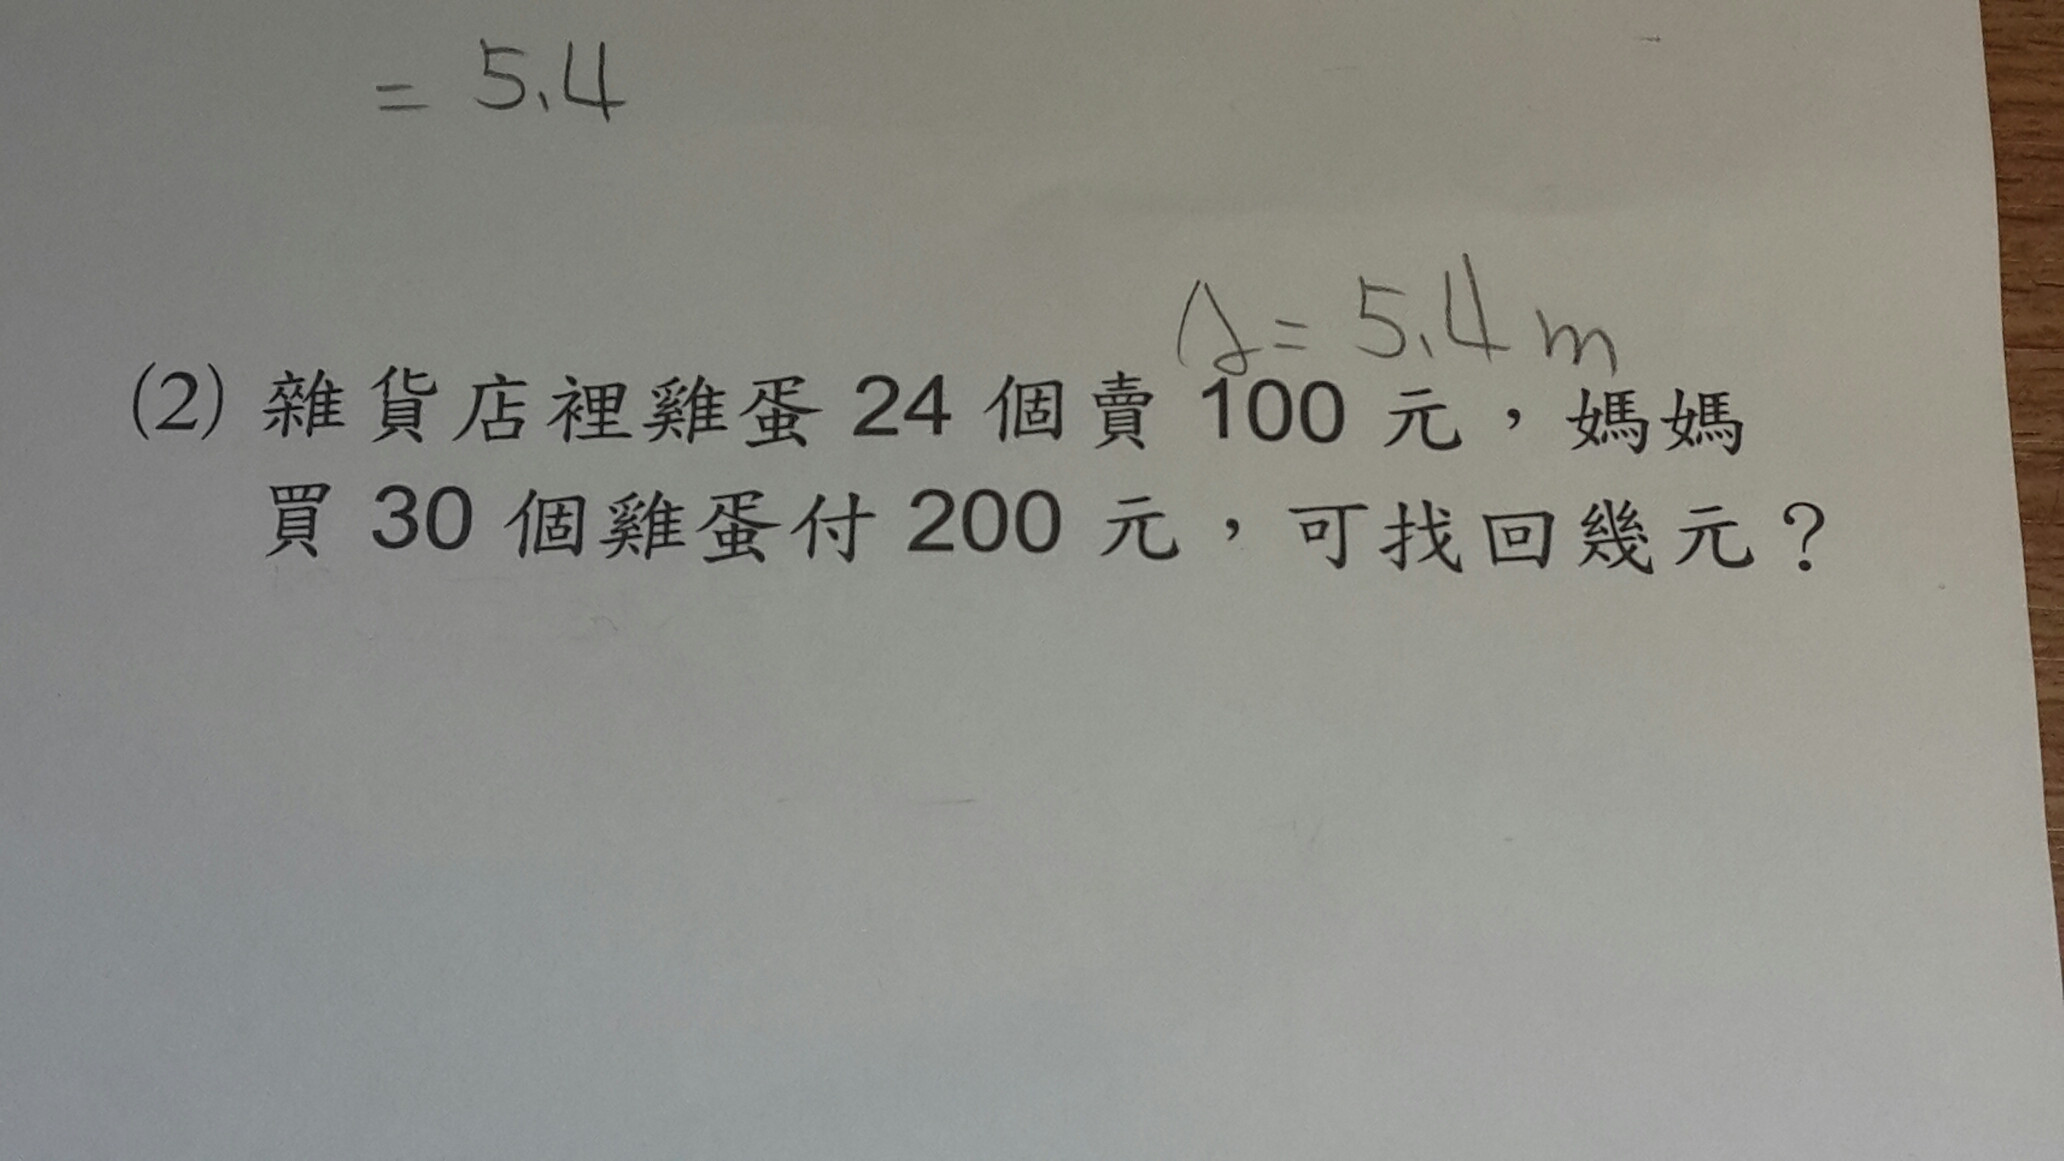 = 5.4
A = 5.4 m
(2) 雜貨店裡雞蛋 24 個賣 100 元，媽媽
買 30 個雞蛋付 200 元，可找回幾元？